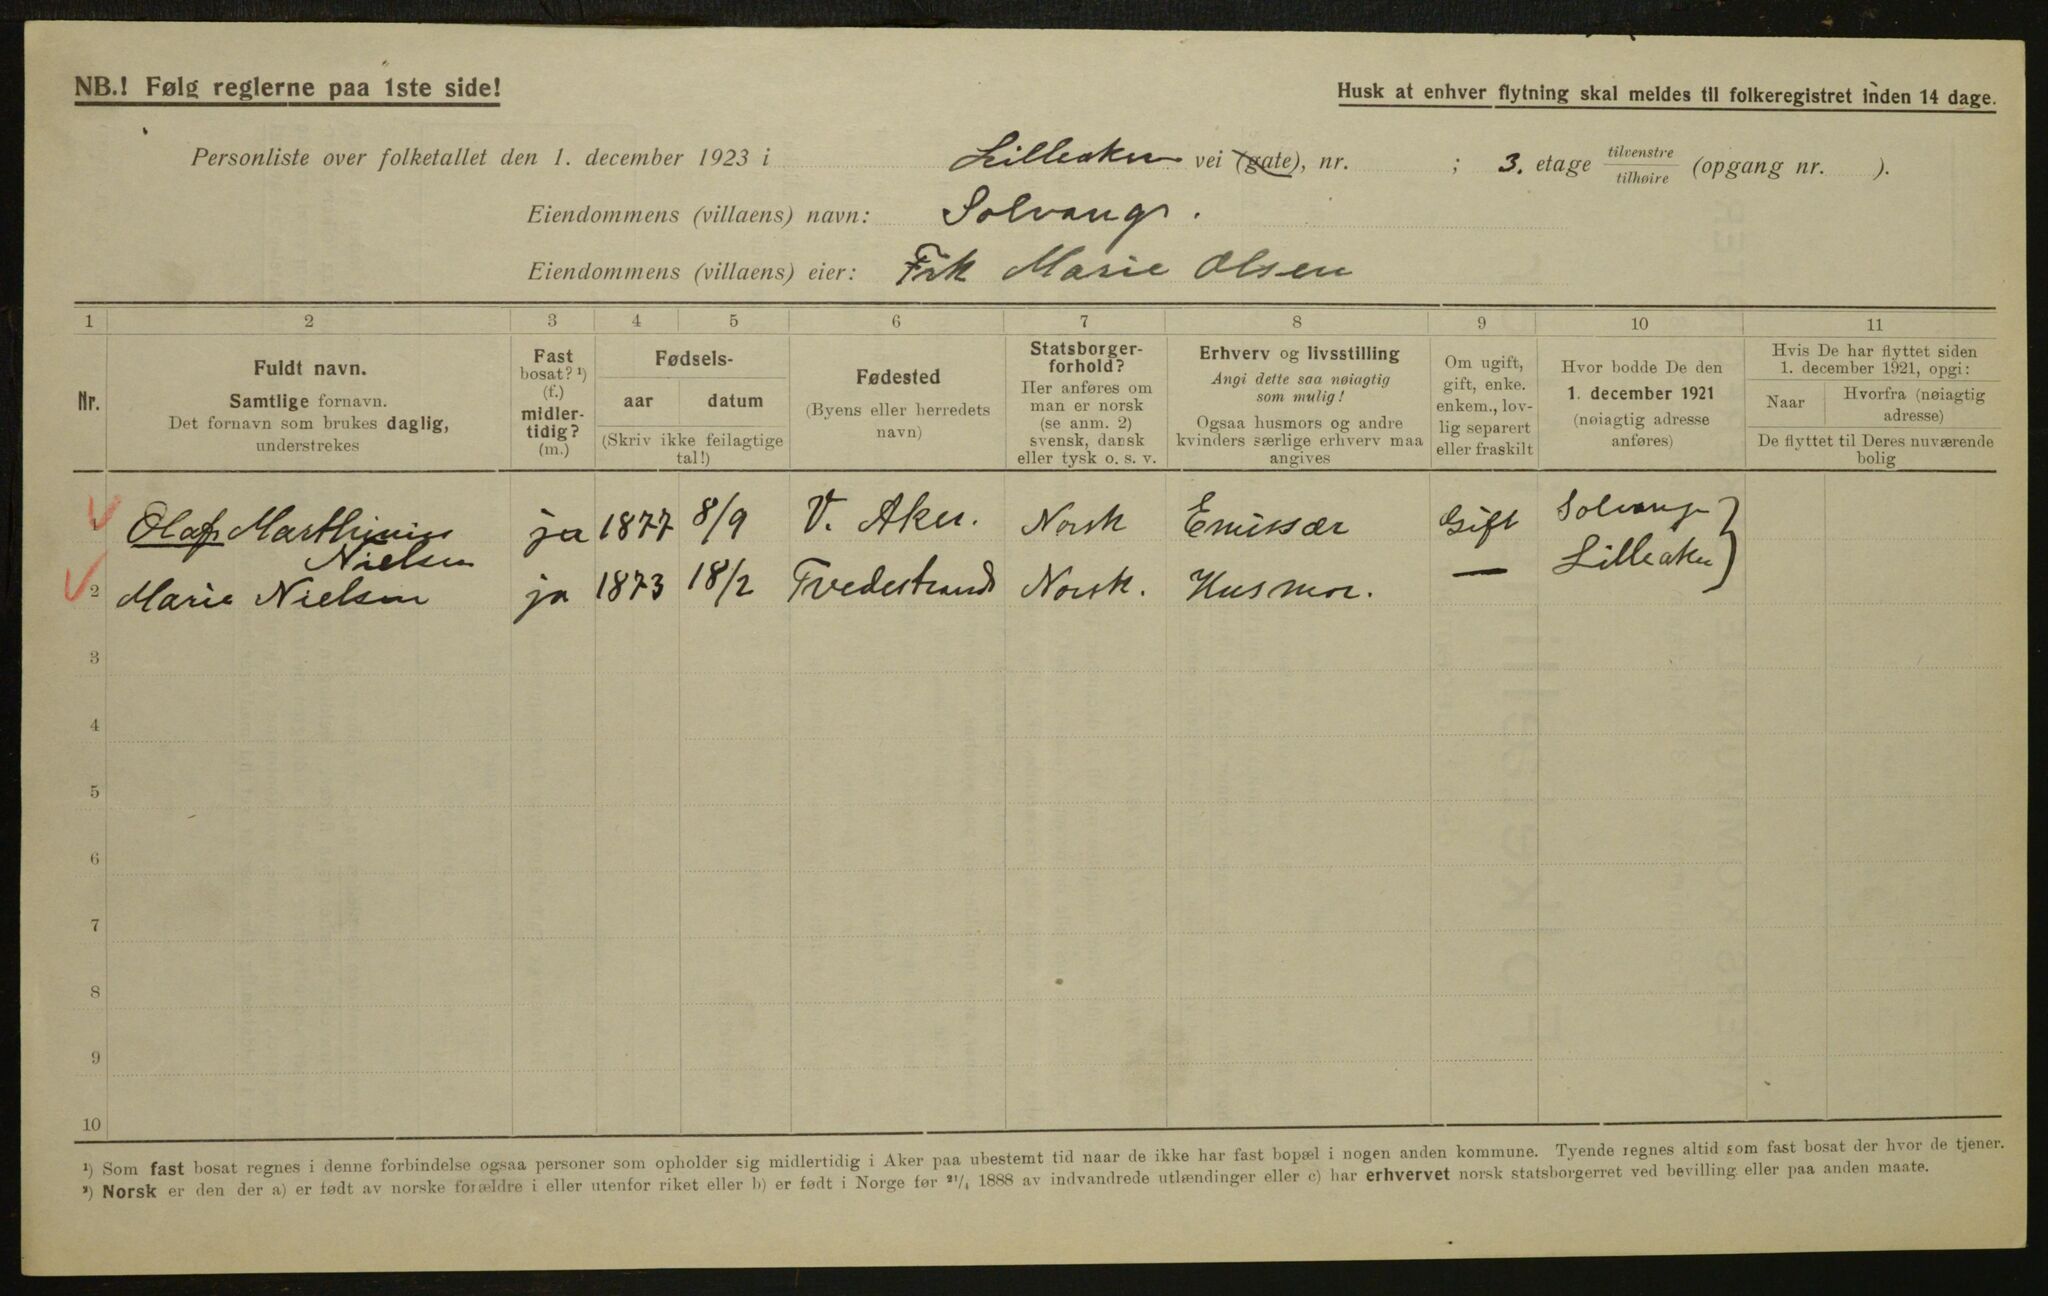 NB.! Følg reglerne paa 1ste side!
Husk at enhver flytning skal meldes til folkeregistret inden 14 dage.
Personliste over folketallet den 1. december 1923 i Lilleaker vei (gate), nr. ; 3. etage tilvenstre tilhøire (opgang nr. ).
Eiendommens (villaens) navn: Solvang.
Eiendommens (villaens) eier: Frk Marie Olsen
1 2 3 4 5 6 7 8 9 10 11
Nr.
Fuldt navn.
Samtlige fornavn.
Det fornavn som brukes daglig,
understrekes
Fast
bosat? ¹)
(f.)
midler-
tidig?
(m.)
Fødsels-
aar datum
(Skriv ikke feilagtige
tal!)
Fødested
(Byens eller herredets
navn)
Statsborger-
forhold?
Her anføres om
man er norsk
(se anm. 2)
svensk, dansk
eller tysk o. s. v.
Erhverv og livsstilling
Angi dette saa nøiagtig
som mulig!
Ogsaa husmors og andre
kvinders særlige erhverv maa
angives
Om ugift,
gift, enke.
enkem., lov-
lig separert
eller fraskilt
Hvor bodde De den
1. december 1921
(nøiagtig adresse
anføres)
Hvis De har flyttet siden
1. december 1921, opgi:
Naar
Hvorfra (nøiagtig
adresse)
De flyttet til Deres nuværende
bolig
1 Olaf Marthinius Nielsen ja 1877 8/9 V. Aker. Norsk Emissær Gift Solvang
2 Marie Nielsen ja 1873 18/2 Tvedestrand Norsk. Husmor. — Lilleaker
3
4
5
6
7
8
9
10
¹) Som fast bosat regnes i denne forbindelse ogsaa personer som opholder sig midlertidig i Aker paa ubestemt tid naar de ikke har fast bopæl i nogen anden kommune. Tyende regnes altid som fast bosat der hvor de tjener.
²) Norsk er den der a) er født av norske forældre i eller utenfor riket eller b) er født i Norge før ²¹/₄ 1888 av indvandrede utlændinger eller c) har erhvervet norsk statsborgerret ved bevilling eller paa anden maate.